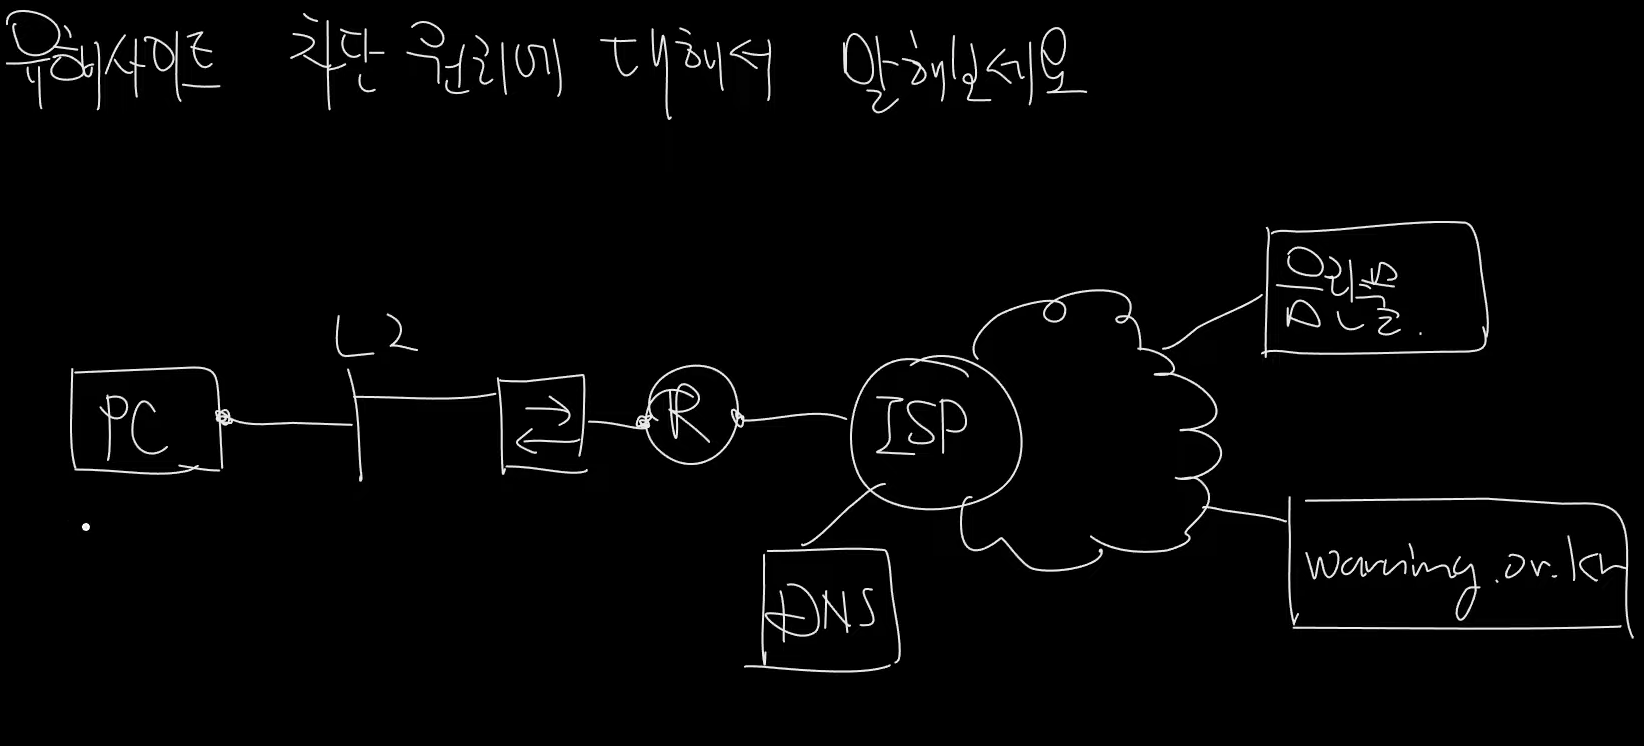 유해사이트 차단 원리에 대해서 말해보세요
L2
PC
R
ISP
DNS
warning.or.kr